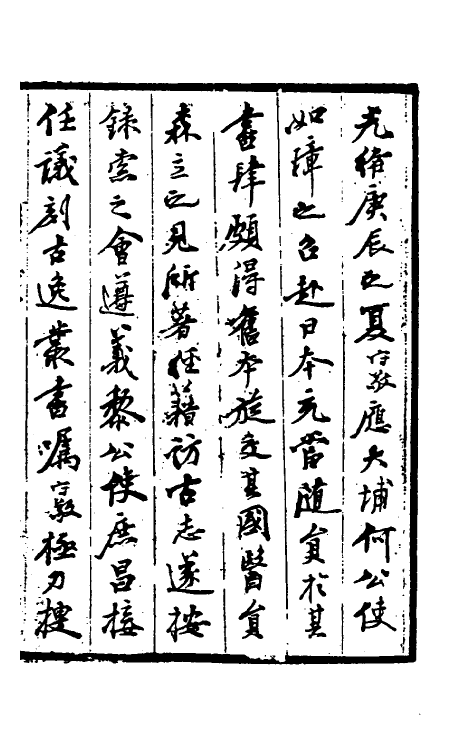 光緒庚辰之夏守敬應大埔何公使
如璋之召赴日本充當隨員於其
書肆頗得舊本旋交其國醫員
森立之見所著經籍訪古志遂按
錄索之會遵義黎公使庶昌接
任議刻古逸叢書囑守敬極力搜